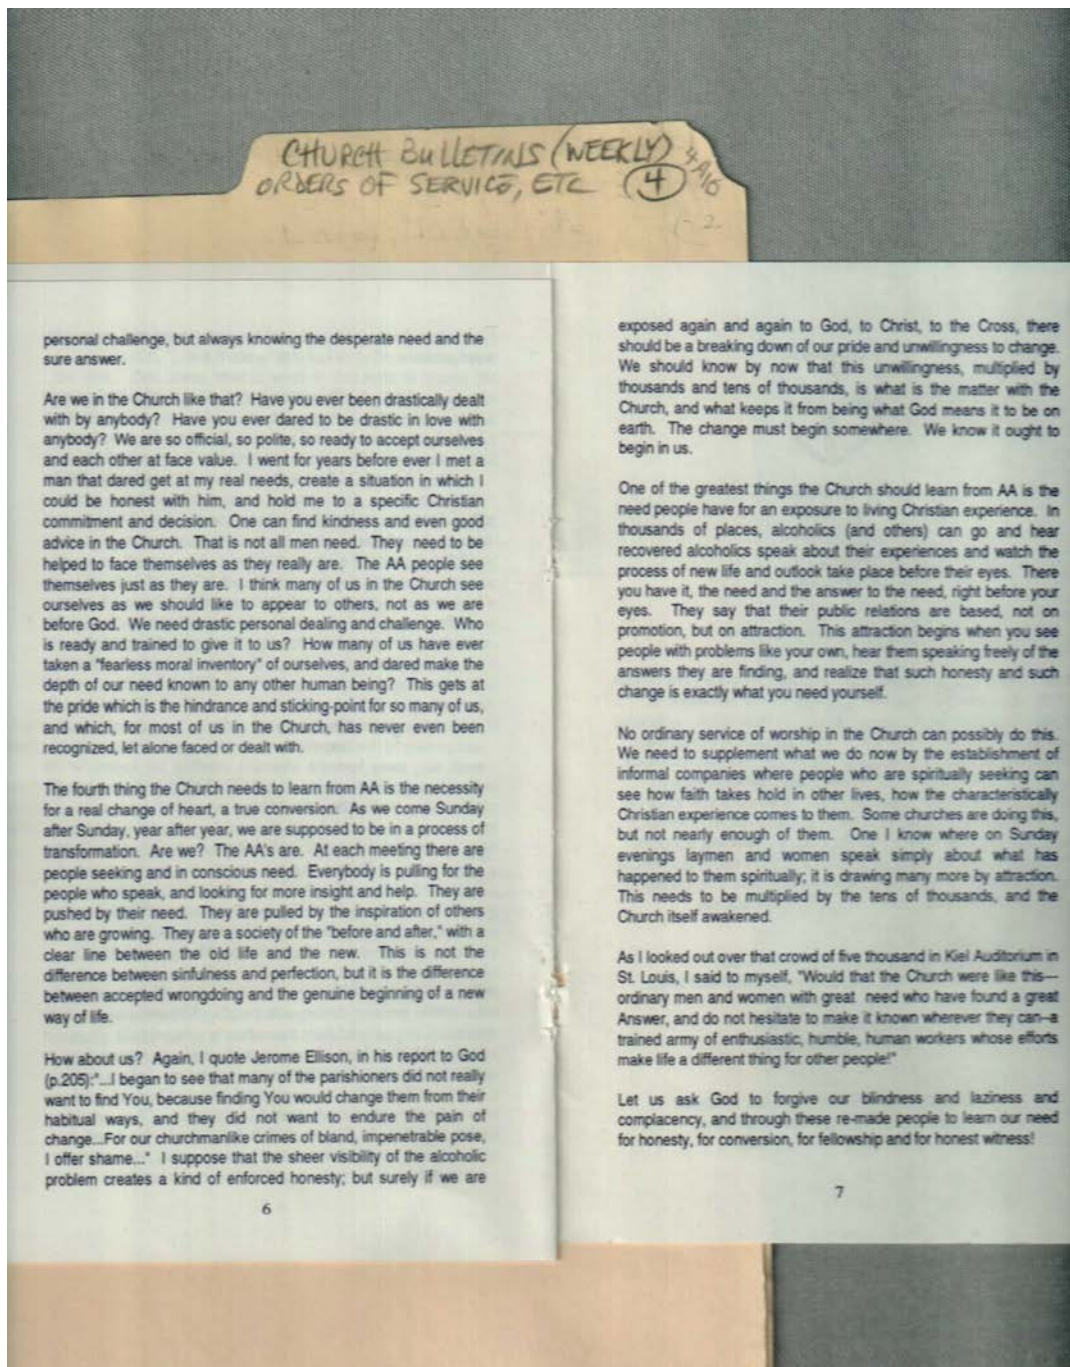 CHURCH BULLETINS (WEEKLY)
ORDERS OF SERVICE, ETC 4
personal challenge, but always knowing the desperate need and the
sure answer.
Are we in the Church like that? Have you ever been drastically dealt
with by anybody? Have you ever dared to be drastic in love with
anybody? We are so official, so polite, so ready to accept ourselves
and each other at face value. I went for years before ever I met a
man that dared get at my real needs, create a situation in which I
could be honest with him, and hold me to a specific Christian
commitment and decision. One can find kindness and even good
advice in the Church. That is not all men need. They need to be
helped to face themselves as they really are. The AA people see
themselves just as they are. I think many of us in the Church see
ourselves as we should like to appear to others, not as we are
before God. We need drastic personal dealing and challenge. Who
is ready and trained to give it to us? How many of us have ever
taken a "fearless moral inventory" of ourselves, and dared make the
depth of our need known to any other human being? This gets at
the pride which is the hindrance and sticking-point for so many of us,
and which, for most of us in the Church, has never even been
recognized, let alone faced or dealt with.
The fourth thing the Church needs to learn from AA is the necessity
for a real change of heart, a true conversion. As we come Sunday
after Sunday, year after year, we are supposed to be in a process of
transformation. Are we? The AA's are. At each meeting there are
people seeking and in conscious need. Everybody is pulling for the
people who speak, and looking for more insight and help. They are
pushed by their need. They are pulled by the inspiration of others
who are growing. They are a society of the "before and after," with a
clear line between the old life and the new. This is not the
difference between sinfulness and perfection, but it is the difference
between accepted wrongdoing and the genuine beginning of a new
way of life.
How about us? Again, I quote Jerome Ellison, in his report to God
(p.205):"...I began to see that many of the parishioners did not really
want to find You, because finding You would change them from their
habitual ways, and they did not want to endure the pain of
change...For our churchmanlike crimes of bland, impenetrable pose,
I offer shame..." I suppose that the sheer visibility of the alcoholic
problem creates a kind of enforced honesty; but surely if we are
6
exposed again and again to God, to Christ, to the Cross, there
should be a breaking down of our pride and unwillingness to change.
We should know by now that this unwillingness, multiplied by
thousands and tens of thousands, is what is the matter with the
Church, and what keeps it from being what God means it to be on
earth. The change must begin somewhere. We know it ought to
begin in us.
One of the greatest things the Church should learn from AA is the
need people have for an exposure to living Christian experience. In
thousands of places, alcoholics (and others) can go and hear
recovered alcoholics speak about their experiences and watch the
process of new life and outlook take place before their eyes. There
you have it, the need and the answer to the need, right before your
eyes. They say that their public relations are based, not on
promotion, but on attraction. This attraction begins when you see
people with problems like your own, hear them speaking freely of the
answers they are finding, and realize that such honesty and such
change is exactly what you need yourself.
No ordinary service of worship in the Church can possibly do this.
We need to supplement what we do now by the establishment of
informal companies where people who are spiritually seeking can
see how faith takes hold in other lives, how the characteristically
Christian experience comes to them. Some churches are doing this,
but not nearly enough of them. One I know where on Sunday
evenings laymen and women speak simply about what has
happened to them spiritually; it is drawing many more by attraction.
This needs to be multiplied by the tens of thousands, and the
Church itself awakened.
As I looked out over that crowd of five thousand in Kiel Auditorium in
St. Louis, I said to myself, "Would that the Church were like this—
ordinary men and women with great need who have found a great
Answer, and do not hesitate to make it known wherever they can--a
trained army of enthusiastic, humble, human workers whose efforts
make life a different thing for other people!"
Let us ask God to forgive our blindness and laziness and
complacency, and through these re-made people to learn our need
for honesty, for conversion, for fellowship and for honest witness!
7